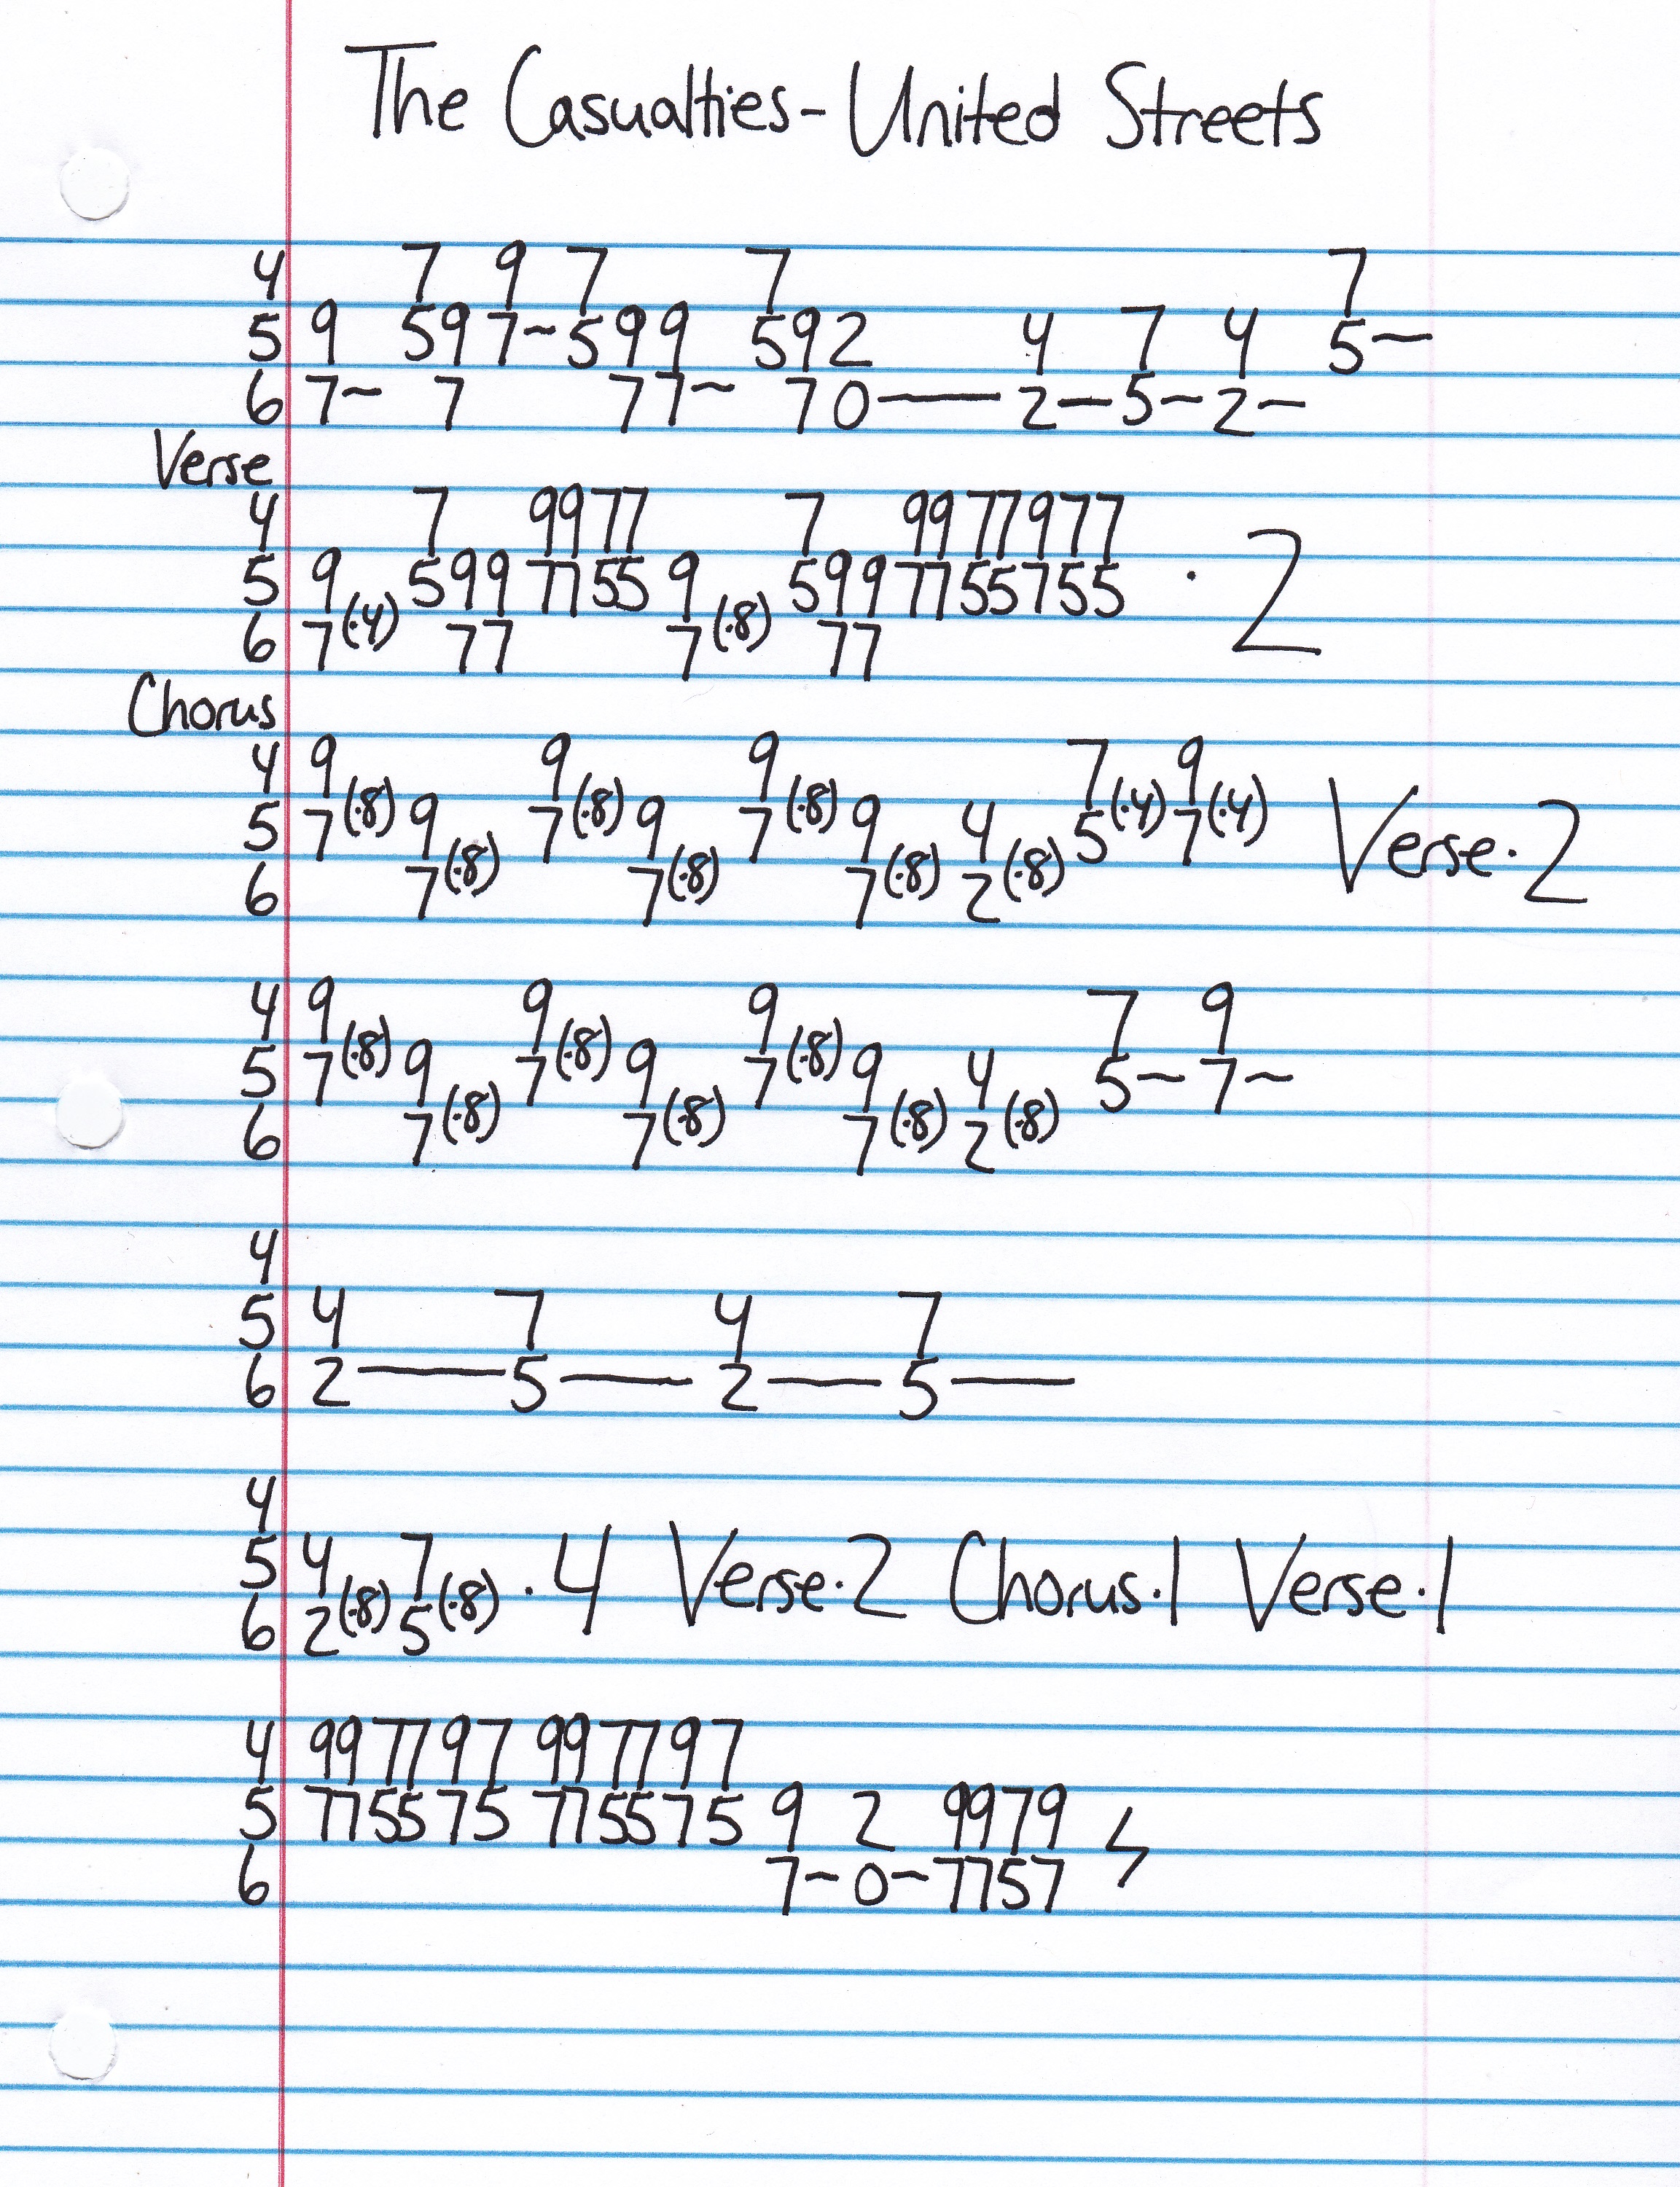 The Casualties - United Streets
4 7 9 7 7 7
5 9 59 7~599 592 4 7 4 5~
6 7~ 7 77~ 70—— 2—5~2~
Verse
4 7 9977 7 9977977
5 9 599 7755 9 599 7755755 · 2
6 7(·4) 77 7(·8) 77
Chorus
4 9 9 9 7 9
5 7(·8) 9 7(·8) 9 7(·8) 9 4 5(·4) 7(·4) Verse·2
6 7(·8) 7(·8) 7(·8) 2(·8)
4 9 9 9 7 9
5 7(·8) 9 7(·8) 9 7(·8) 9 4 5~ 7~
6 7(·8) 7(·8) 7(·8) 2(·8)
4
5 4 7 4 7
6 2——5——2——5——
4
5 4 7 · 4 Verse·2 Chorus·1 Verse·1
6 2(·8) 5(·8)
4 997797 997797
5 775575 775575 9 2 9979
6 7~0~7757